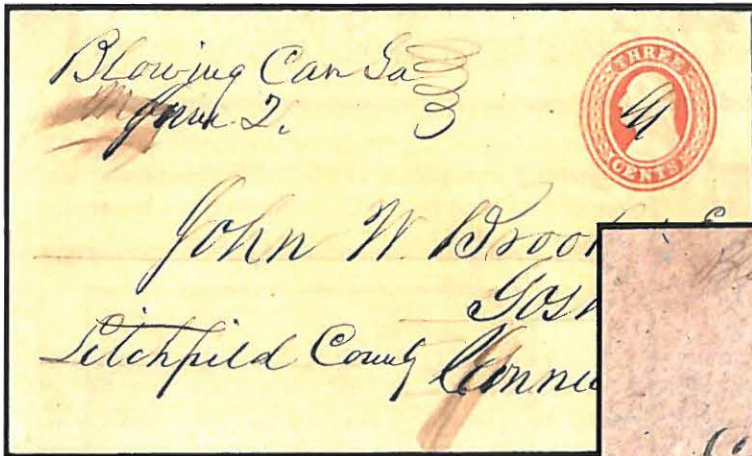 Blowing Can Ga
June 2.
3
THREE
CENTS
John W. Broo
Gosh
Litchfield County Connec